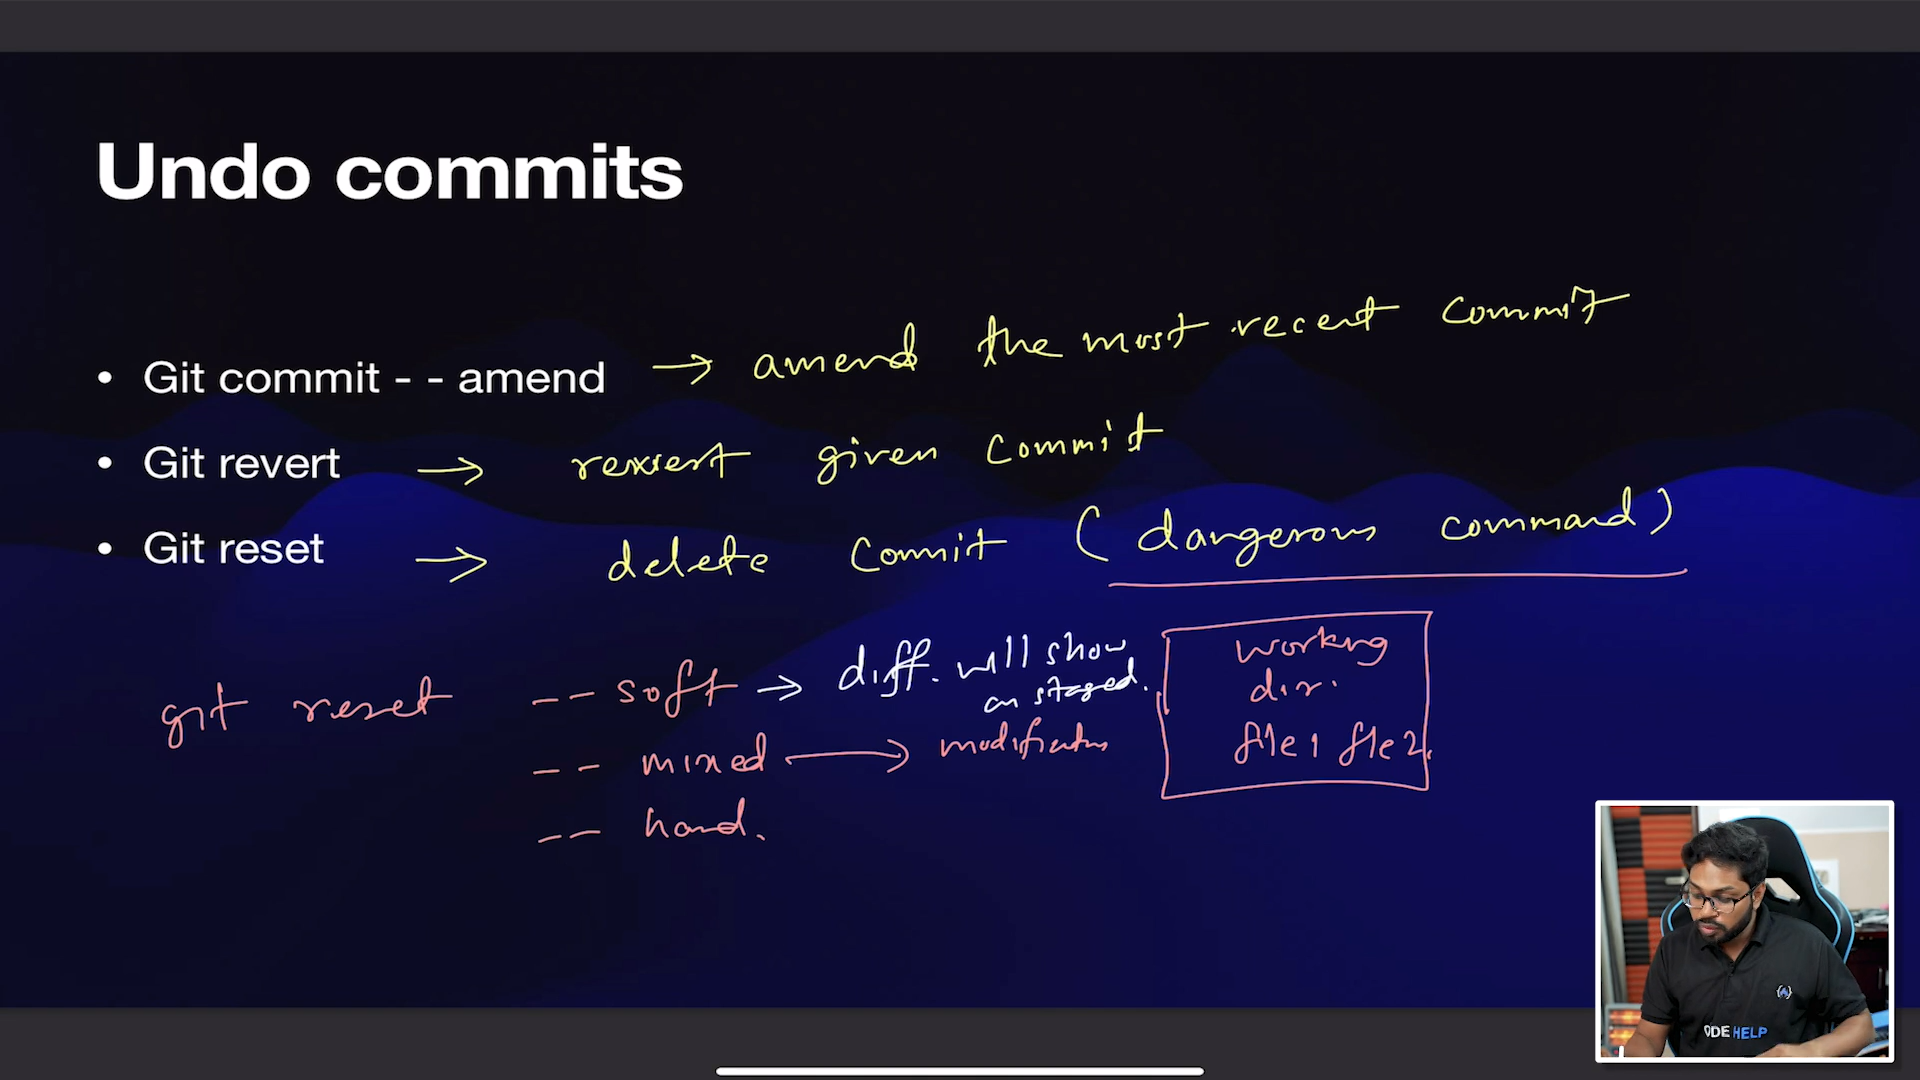 Undo commits
• Git commit - - amend → amend the most recent commit
• Git revert → revert given commit
• Git reset → delete commit (dangerous command)
git reset -- soft → diff. will show as staged.
-- mixed → modifications
-- hard.
working
dir.
file1 file2.
ODE HELP